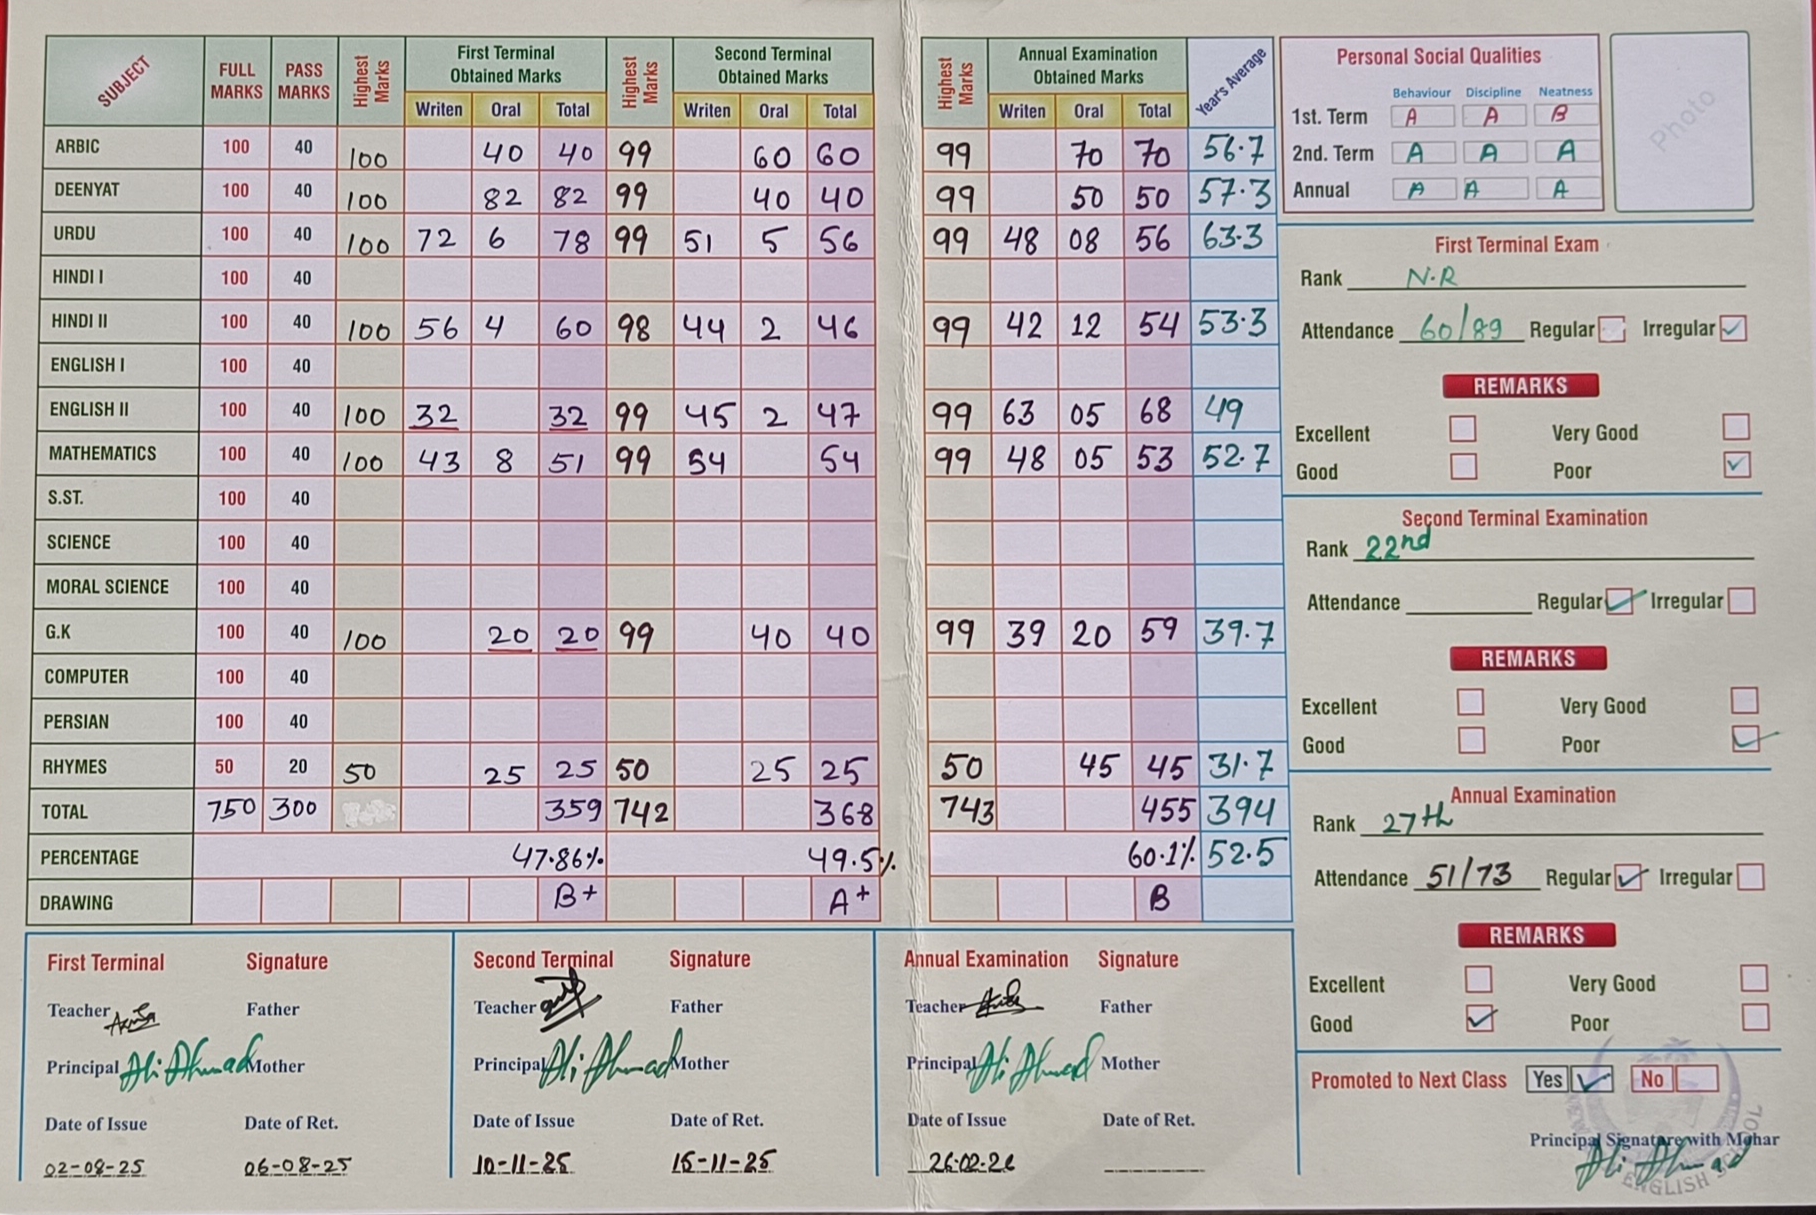 SUBJECT FULL MARKS PASS MARKS Highest Marks First Terminal Obtained Marks Highest Marks Second Terminal Obtained Marks Highest Marks Annual Examination Obtained Marks Year's Average
Writen Oral Total Writen Oral Total Writen Oral Total
ARBIC 100 40 100 40 40 99 60 60 99 70 70 56.7
DEENYAT 100 40 100 82 82 99 40 40 99 50 50 57.3
URDU 100 40 100 72 6 78 99 51 5 56 99 48 08 56 63.3
HINDI I 100 40
HINDI II 100 40 100 56 4 60 98 44 2 46 99 42 12 54 53.3
ENGLISH I 100 40
ENGLISH II 100 40 100 32 32 99 45 2 47 99 63 05 68 49
MATHEMATICS 100 40 100 43 8 51 99 54 54 99 48 05 53 52.7
S.ST. 100 40
SCIENCE 100 40
MORAL SCIENCE 100 40
G.K 100 40 100 20 20 99 40 40 99 39 20 59 39.7
COMPUTER 100 40
PERSIAN 100 40
RHYMES 50 20 50 25 25 50 25 25 50 45 45 31.7
TOTAL 750 300 359 742 368 743 455 394
PERCENTAGE 47.86% 49.5% 60.1% 52.5
DRAWING B+ A+ B
First Terminal Signature
Teacher Father
Principal Ali Ahmad Mother
Date of Issue Date of Ret.
02-08-25 06-08-25
Second Terminal Signature
Teacher Father
Principal Ali Ahmad Mother
Date of Issue Date of Ret.
10-11-25 15-11-25
Annual Examination Signature
Teacher Father
Principal Ali Ahmad Mother
Date of Issue Date of Ret.
26.02.26
Personal Social Qualities
Behaviour Discipline Neatness
1st. Term A A B
2nd. Term A A A
Annual A A A
Photo
First Terminal Exam
Rank N.R
Attendance 60/89 Regular Irregular ✓
REMARKS
Excellent Very Good
Good Poor ✓
Second Terminal Examination
Rank 22nd
Attendance Regular ✓ Irregular
REMARKS
Excellent Very Good
Good Poor ✓
Annual Examination
Rank 27th
Attendance 51/73 Regular ✓ Irregular
REMARKS
Excellent Very Good
Good ✓ Poor
Promoted to Next Class Yes ✓ No
Principal Signature with Mohar
Ali Ahmad
ENGLISH SCHOOL